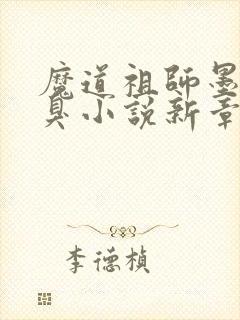 魔道祖師墨
臭小説新章
李德楨